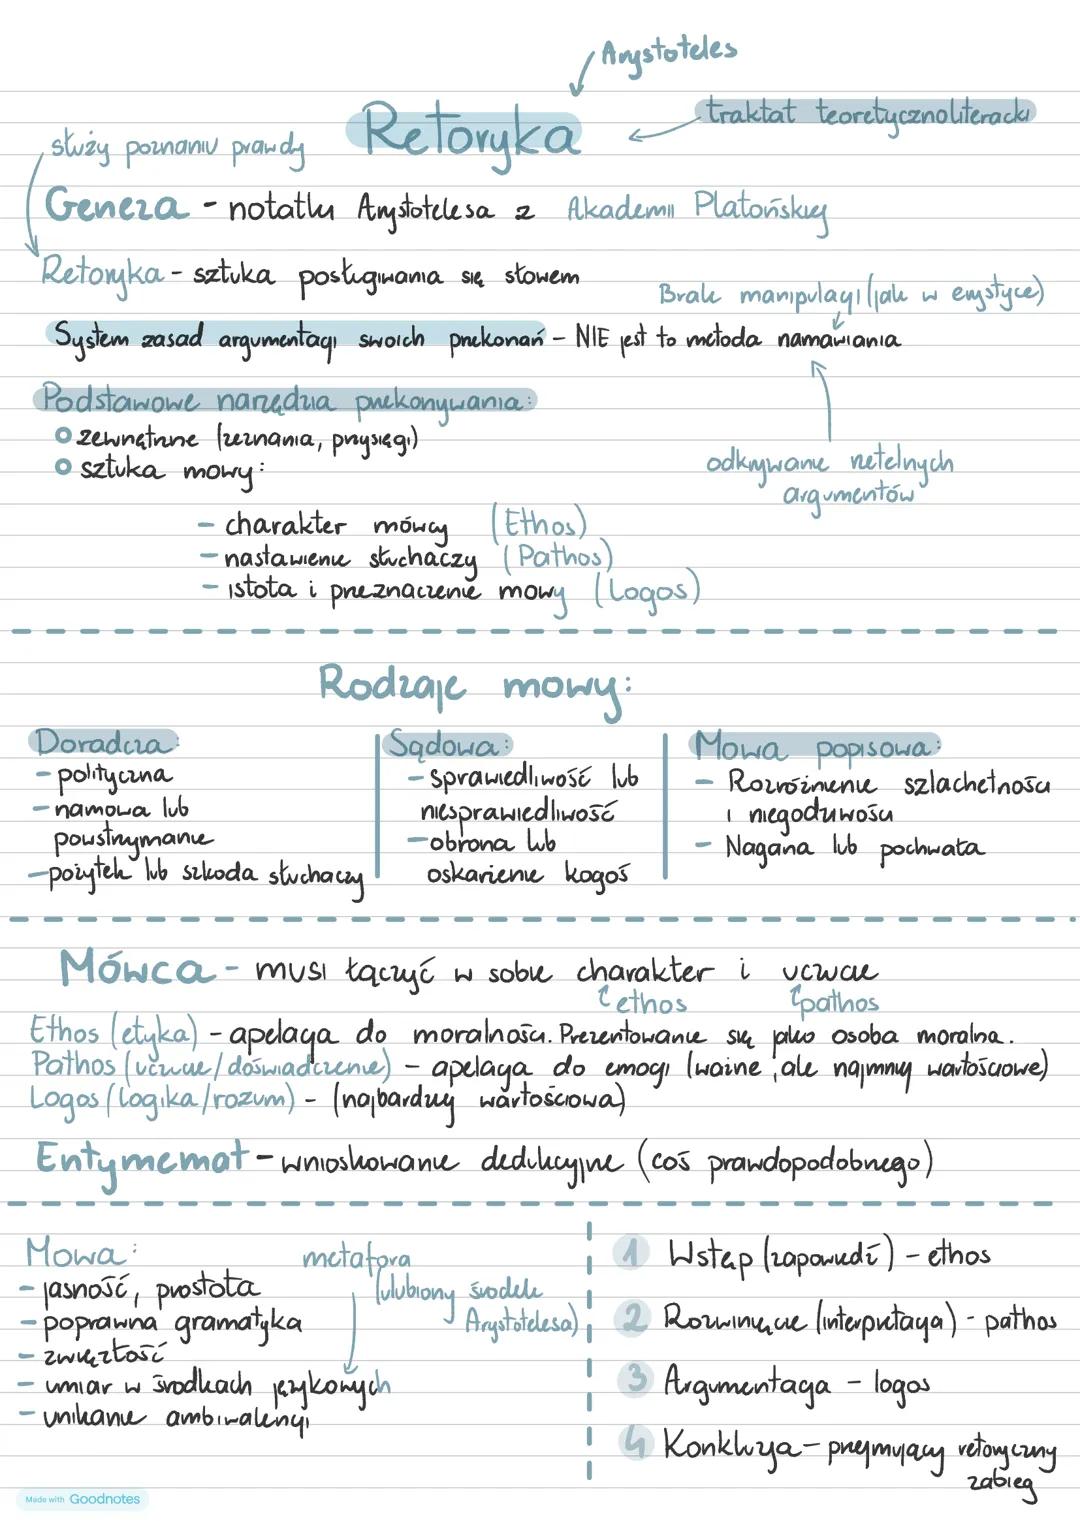 Arystoteles
Retoryka
traktat teoretycznoliteracki
służy poznaniu prawdy
Geneza - notatki Arystotelesa z Akademii Platońskiej
Retoryka - sztuka posługiwania się słowem
Brak manipulacji (jak w erystyce)
System zasad argumentacji swoich przekonań - NIE jest to metoda namawiania
Podstawowe narzędzia przekonywania:
zewnętrzne (zeznania, przysięgi)
sztuka mowy:
odkrywanie rzetelnych
argumentów
- charakter mówcy (Ethos)
- nastawienie słuchaczy (Pathos)
- istota i przeznaczenie mowy (Logos)
Rodzaje mowy:
Doradcza:
- polityczna
- namowa lub
powstrzymanie
- pożytek lub szkoda słuchaczy
Sądowa:
- sprawiedliwość lub
niesprawiedliwość
- obrona lub
oskarżenie kogoś
Mowa popisowa:
- Rozróżnienie szlachetności
i niegodziwości
- Nagana lub pochwała
Mówca - musi łączyć w sobie charakter i uczucie
ethos pathos
Ethos (etyka) - apelacja do moralności. Prezentowanie się jako osoba moralna.
Pathos (uczucie/doświadczenie) - apelacja do emocji (ważne, ale najmniej wartościowe)
Logos (logika/rozum) - (najbardziej wartościowa)
Entymemat - wnioskowanie dedukcyjne (coś prawdopodobnego)
Mowa:
- jasność, prostota
- poprawna gramatyka
- zwięzłość
- umiar w środkach językowych
- unikanie ambiwalencji
metafora
(ulubiony środek
Arystotelesa)
1 Wstęp (zapowiedź) - ethos
2 Rozwinięcie (interpretacja) - pathos
3 Argumentacja - logos
4 Konkluzja - przejmujący retoryczny
zabieg
Made with Goodnotes